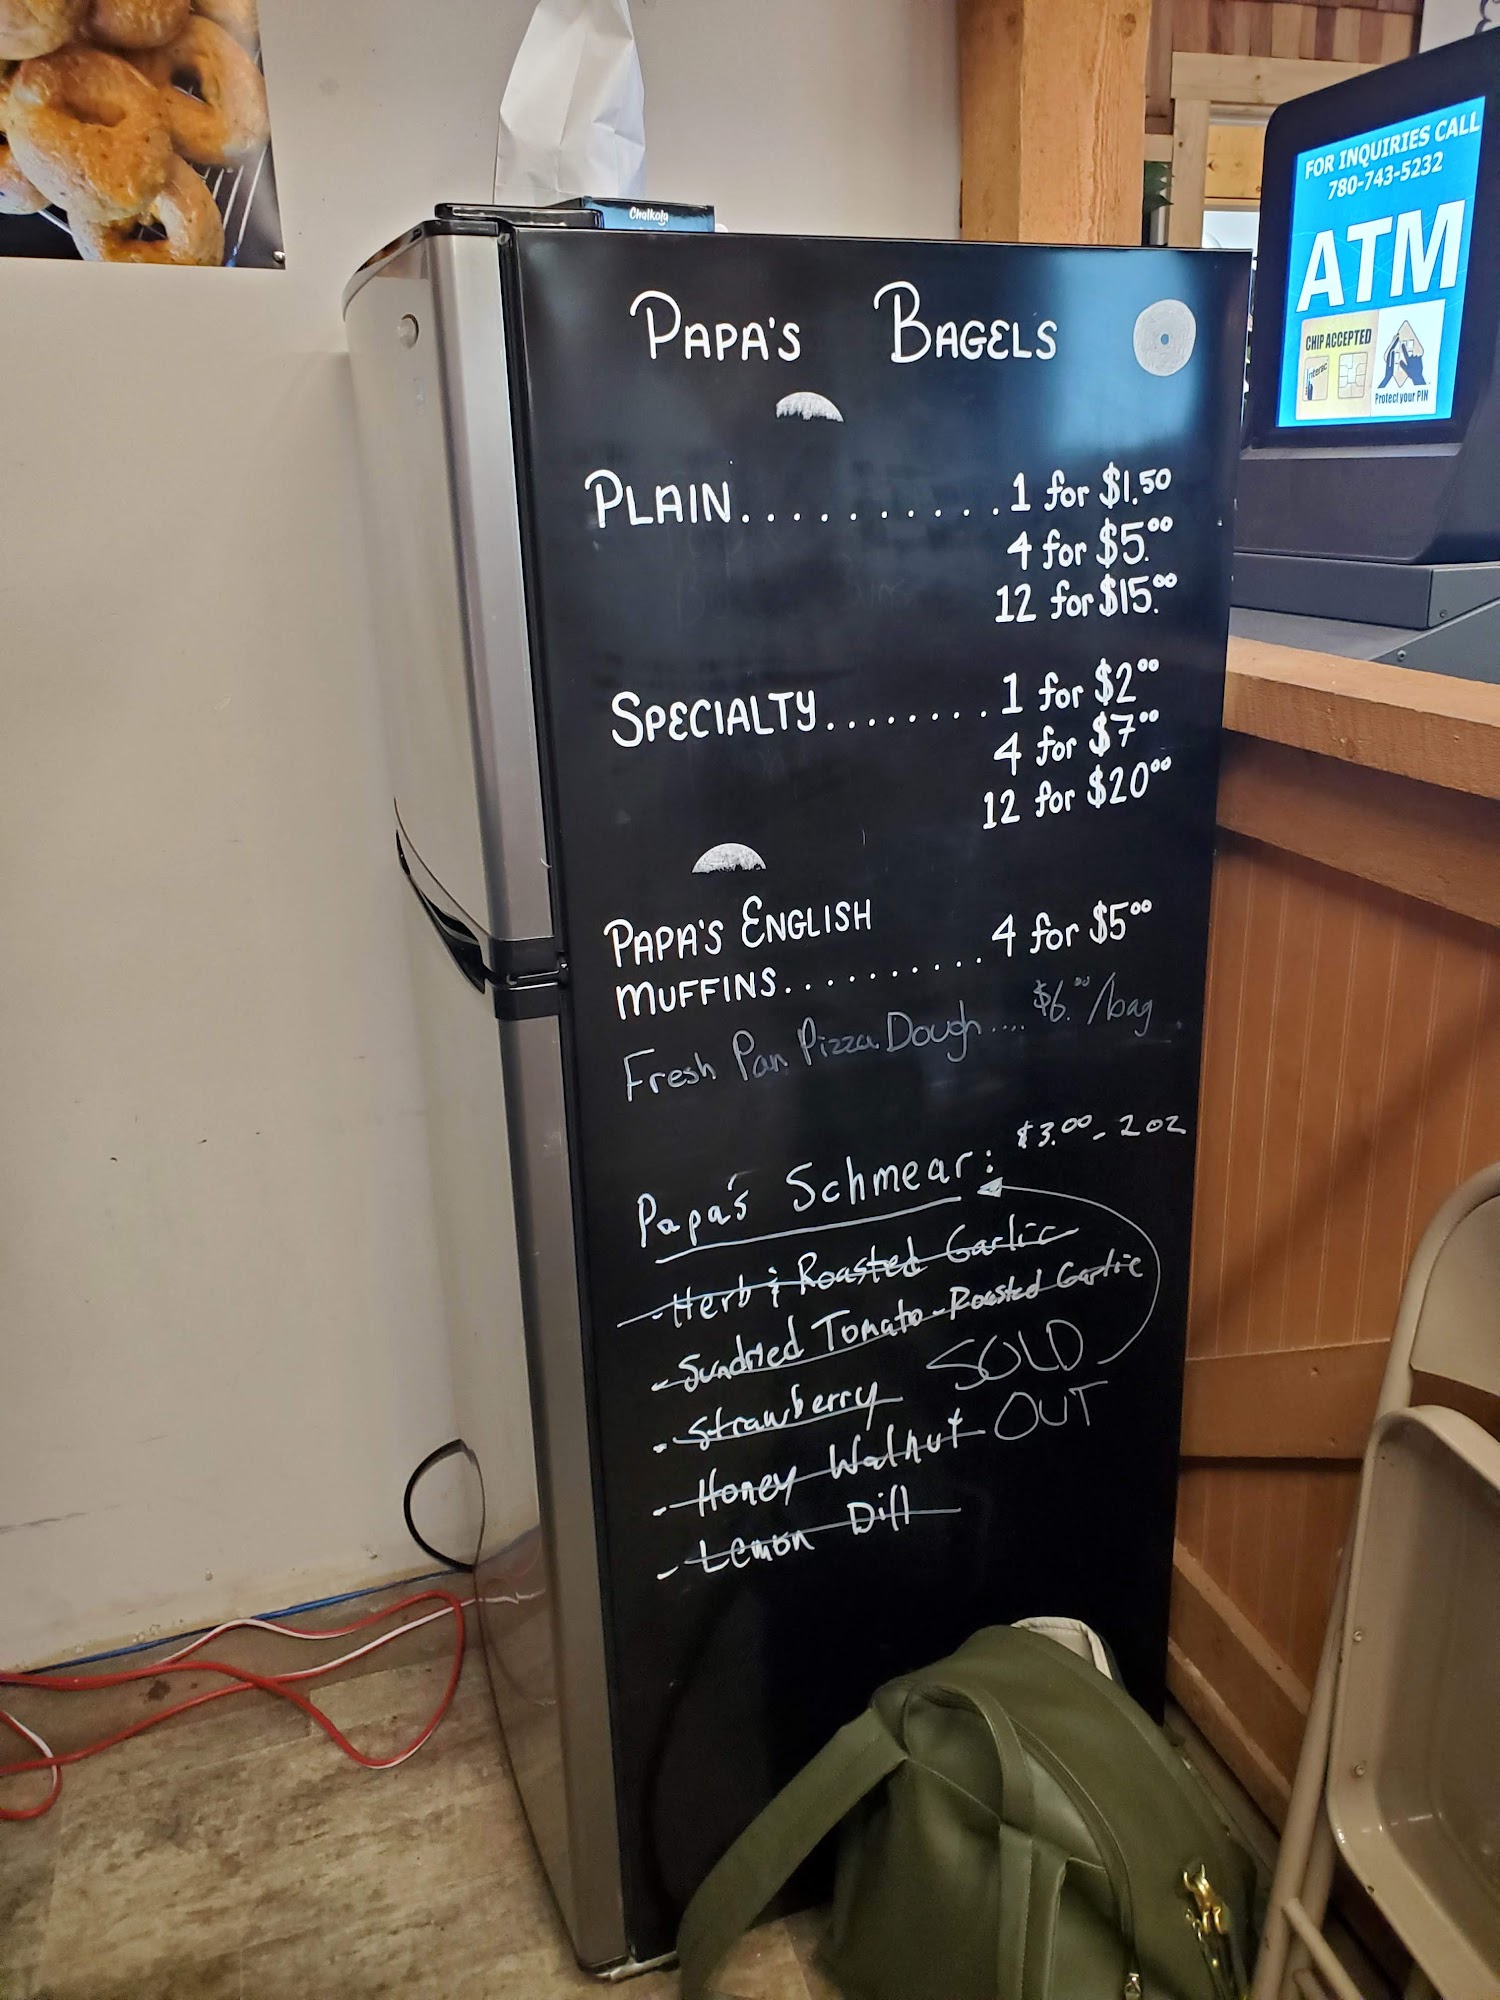 Chalkola
FOR INQUIRIES CALL
780-743-5232
ATM
CHIP ACCEPTED
Interac
Protect your PIN
PAPA'S BAGELS
PLAIN..........1 for $1.50
4 for $5.00
12 for $15.00
SPECIALTY........1 for $2.00
4 for $7.00
12 for $20.00
PAPA'S ENGLISH
MUFFINS..........4 for $5.00
Fresh Pan Pizza Dough.... $6.00/bag
Papa's Schmear: $3.00 - 2 oz
- Herb & Roasted Garlic
- Sundried Tomato - Roasted Garlic
- Strawberry
SOLD
- Honey Walnut
OUT
- Lemon Dill